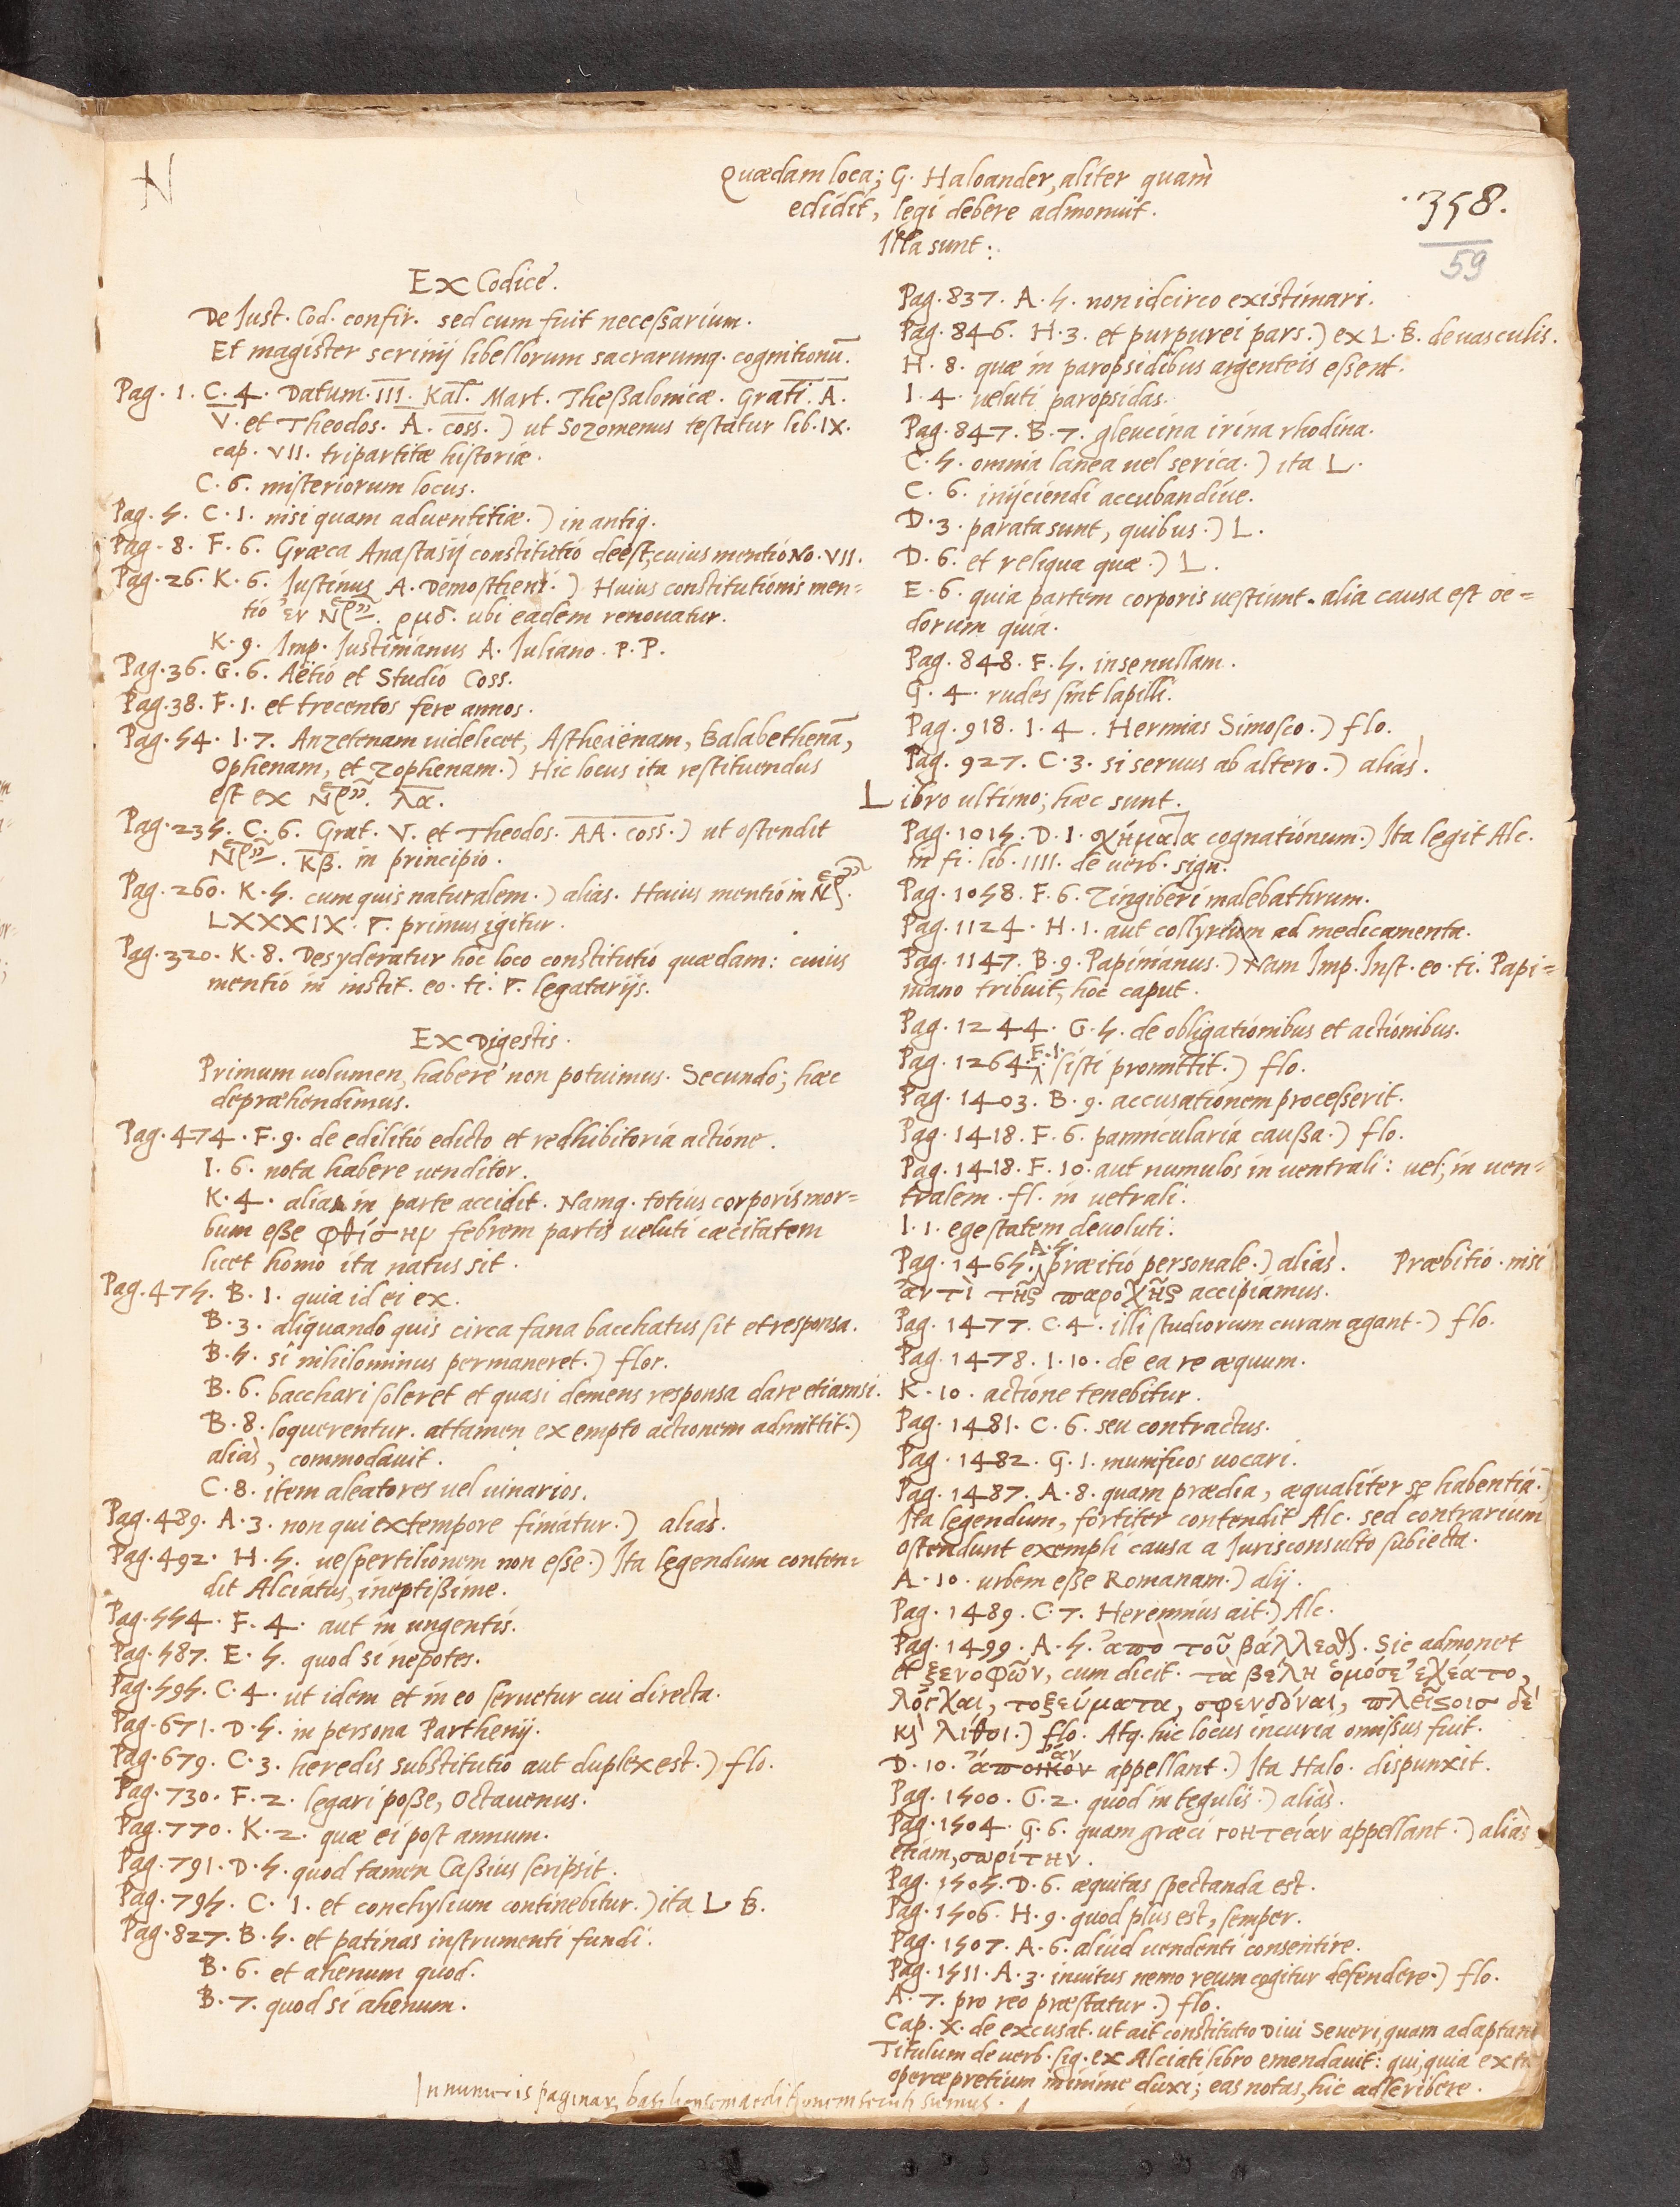 N
Quædam loca; G. Haloander, aliter quàm
edidit, legi debere admonuit.
Illa sunt:
.358.
59
Ex Codice.
De Just. Cod. confir. sed cum fuit necessarium.
Et magister scrinij libellorum sacrarumq. cognitionū.
Pag. 1. C. 4. Datum. III. Kal. Mart. Thessalonicæ. Grati. A.
V. et Theodos. A. coss.) ut Sozomenus testatur lib. IX.
cap. VII. tripartitæ historiæ.
C. 6. misteriorum locus.
Pag. 5. C. 1. nisi quam aduentitiæ.) in antiq.
Pag. 8. F. 6. Græca Anastasij constitutio deest, cuius mentio No. VII.
Pag. 26. K. 6. Justinus A. Demostheni.) Huius constitutionis men=
tio ἐν Νεαρ. ρμδ. ubi eadem renouatur.
K. 9. Imp. Justinianus A. Juliano. P. P.
Pag. 36. G. 6. Aëtio et Studio Coss.
Pag. 38. F. 1. et trecentos fere annos.
Pag. 54. I. 7. Anzetenam uidelicet, Astheäenam, Balabethenā,
Ophenam, et Zophenam.) Hic locus ita restituendus
est ex Νεαρ. λα.
Pag. 235. C. 6. Grat. V. et Theodos. AA. coss.) ut ostendit
Νεαρ. κβ. in principio.
Pag. 260. K. 5. cum quis naturalem.) alias. Huius mentio in Νεαρ.
LXXXIX. §. primus igitur.
Pag. 320. K. 8. Desyderatur hoc loco constitutio quædam: cuius
mentio in instit. eo. ti. §. legatarijs.
Ex Digestis.
Primum uolumen, habere non potuimus. Secundo; hæc
depræhendimus.
Pag. 474. F. 9. de edilitio edicto et redhibitoria actione.
I. 6. nota habere uenditor.
K. 4. alias in parte accidit. Namq. totius corporis mor=
bum esse φθίσιν febrem partis ueluti cæcitatem
licet homo ita natus sit.
Pag. 475. B. 1. quia id ei ex.
B. 3. aliquando quis circa fana bacchatus sit et responsa.
B. 5. si nihilominus permaneret.) flor.
B. 6. bacchari soleret et quasi demens responsa dare etiamsi.
B. 8. loquerentur. attamen ex empto actionem admittit.)
aliàs, commodauit.
C. 8. item aleatores uel uinarios.
Pag. 489. A. 3. non qui extempore finiatur.) aliàs.
Pag. 492. H. 5. uespertilionem non esse.) Ita legendum conten=
dit Alciatus, ineptissime.
Pag. 554. F. 4. aut in ungentis.
Pag. 587. E. 5. quod si nepotes.
Pag. 595. C. 4. ut idem et in eo seruetur cui directa.
Pag. 671. D. 5. in persona Parthenij.
Pag. 679. C. 3. heredis substitutio aut duplex est.) flo.
Pag. 730. F. 2. legari posse, Octauenus.
Pag. 770. K. 2. quæ ei post annum.
Pag. 791. D. 5. quod tamen Cassius scripsit.
Pag. 795. C. 1. et conchylium continebitur.) ita L. B.
Pag. 827. B. 5. et patinas instrumenti fundi.
B. 6. et ahenum quod.
B. 7. quod si ahenum.
Pag. 837. A. 5. non idcirco existimari.
Pag. 846. H. 3. et purpurei pars.) ex L. B. de uasculis.
H. 8. quæ in paropsidibus argenteis essent.
I. 4. ueluti paropsidas.
Pag. 847. B. 7. gleucina irina rhodina.
C. 5. omnia lanea uel serica.) ita L.
C. 6. inijciendi accubandiue.
D. 3. parata sunt, quibus.) L.
D. 6. et reliqua quæ.) L.
E. 6. quia partem corporis uestiunt. alia causa est oe=
dorum quia.
Pag. 848. F. 5. in se nullam.
G. 4. rudes sint lapilli.
Pag. 918. I. 4. Hermias Simosco.) flo.
Pag. 927. C. 3. si seruus ab altero.) aliàs.
Libro ultimo; hæc sunt.
Pag. 1015. D. 1. σχήματα cognationum.) Ita legit Alc.
in fi. lib. IIII. de uerb. sign.
Pag. 1058. F. 6. Zingiberi malebathrum.
Pag. 1124. H. 1. aut collyrium ad medicamenta.
Pag. 1147. B. 9. Papinianus.) Nam Imp. Inst. eo. ti. Papi=
niano tribuit, hoc caput.
Pag. 1244. G. 5. de obligationibus et actionibus.
Pag. 1264. F. 1. sisti promittit.) flo.
Pag. 1403. B. 9. accusationem processerit.
Pag. 1418. F. 6. pannicularia caussa.) flo.
Pag. 1418. F. 10. aut numulos in uentrali: uel, in uen=
tralem. fl. in uetrali.
I. 1. egestatem deuoluti.
Pag. 1465. A. 5. præitio personale.) aliàs. Præbitio. nisi
ἀντὶ τῆς παροχῆς accipiamus.
Pag. 1477. C. 4. illi studiorum curam agant.) flo.
Pag. 1478. I. 10. de ea re æquum.
K. 10. actione tenebitur.
Pag. 1481. C. 6. seu contractus.
Pag. 1482. G. 1. munificos uocari.
Pag. 1487. A. 8. quam prædia, æqualiter se habentia.)
Ita legendum, fortiter contendit Alc. sed contrarium
ostendunt exempli causa a Jurisconsulto subiecta.
A. 10. urbem esse Romanam.) alij.
Pag. 1489. C. 7. Herennius ait.) Alc.
Pag. 1499. A. 5. ἀπὸ τοῦ βάλλεσθαι. Sic admonet
et ξενοφῶν, cum dicit. τὰ βέλη ὁμόσε ἐχέατο,
λόγχαι, τοξεύματα, σφενδόναι, πλεῖστοισ δὲ
καὶ λίθοι.) flo. Atq. hic locus incuria omissus fuit.
D. 10. ἄποικον appellant.) Ita Halo. dispunxit.
Pag. 1500. G. 2. quod in tegulis.) aliàs.
Pag. 1504. G. 6. quam græci γοητείαν appellant.) aliàs
etiam, σωρίτην.
Pag. 1505. D. 6. æquitas spectanda est.
Pag. 1506. H. 9. quod plus est, semper.
Pag. 1507. A. 6. aliud uendenti consentire.
Pag. 1511. A. 3. inuitus nemo reum cogitur defendere.) flo.
A. 7. pro reo præstatur.) flo.
Cap. X. de excusat. ut ait constitutio Diui Seueri, quam
Titulum de uerb. sig. ex Alciati libro emendauit: qui, quia
operæpretium minime duxi; eas notas, hic adscribere.
In numeris paginarum basiliensem aeditionem secuti sumus.